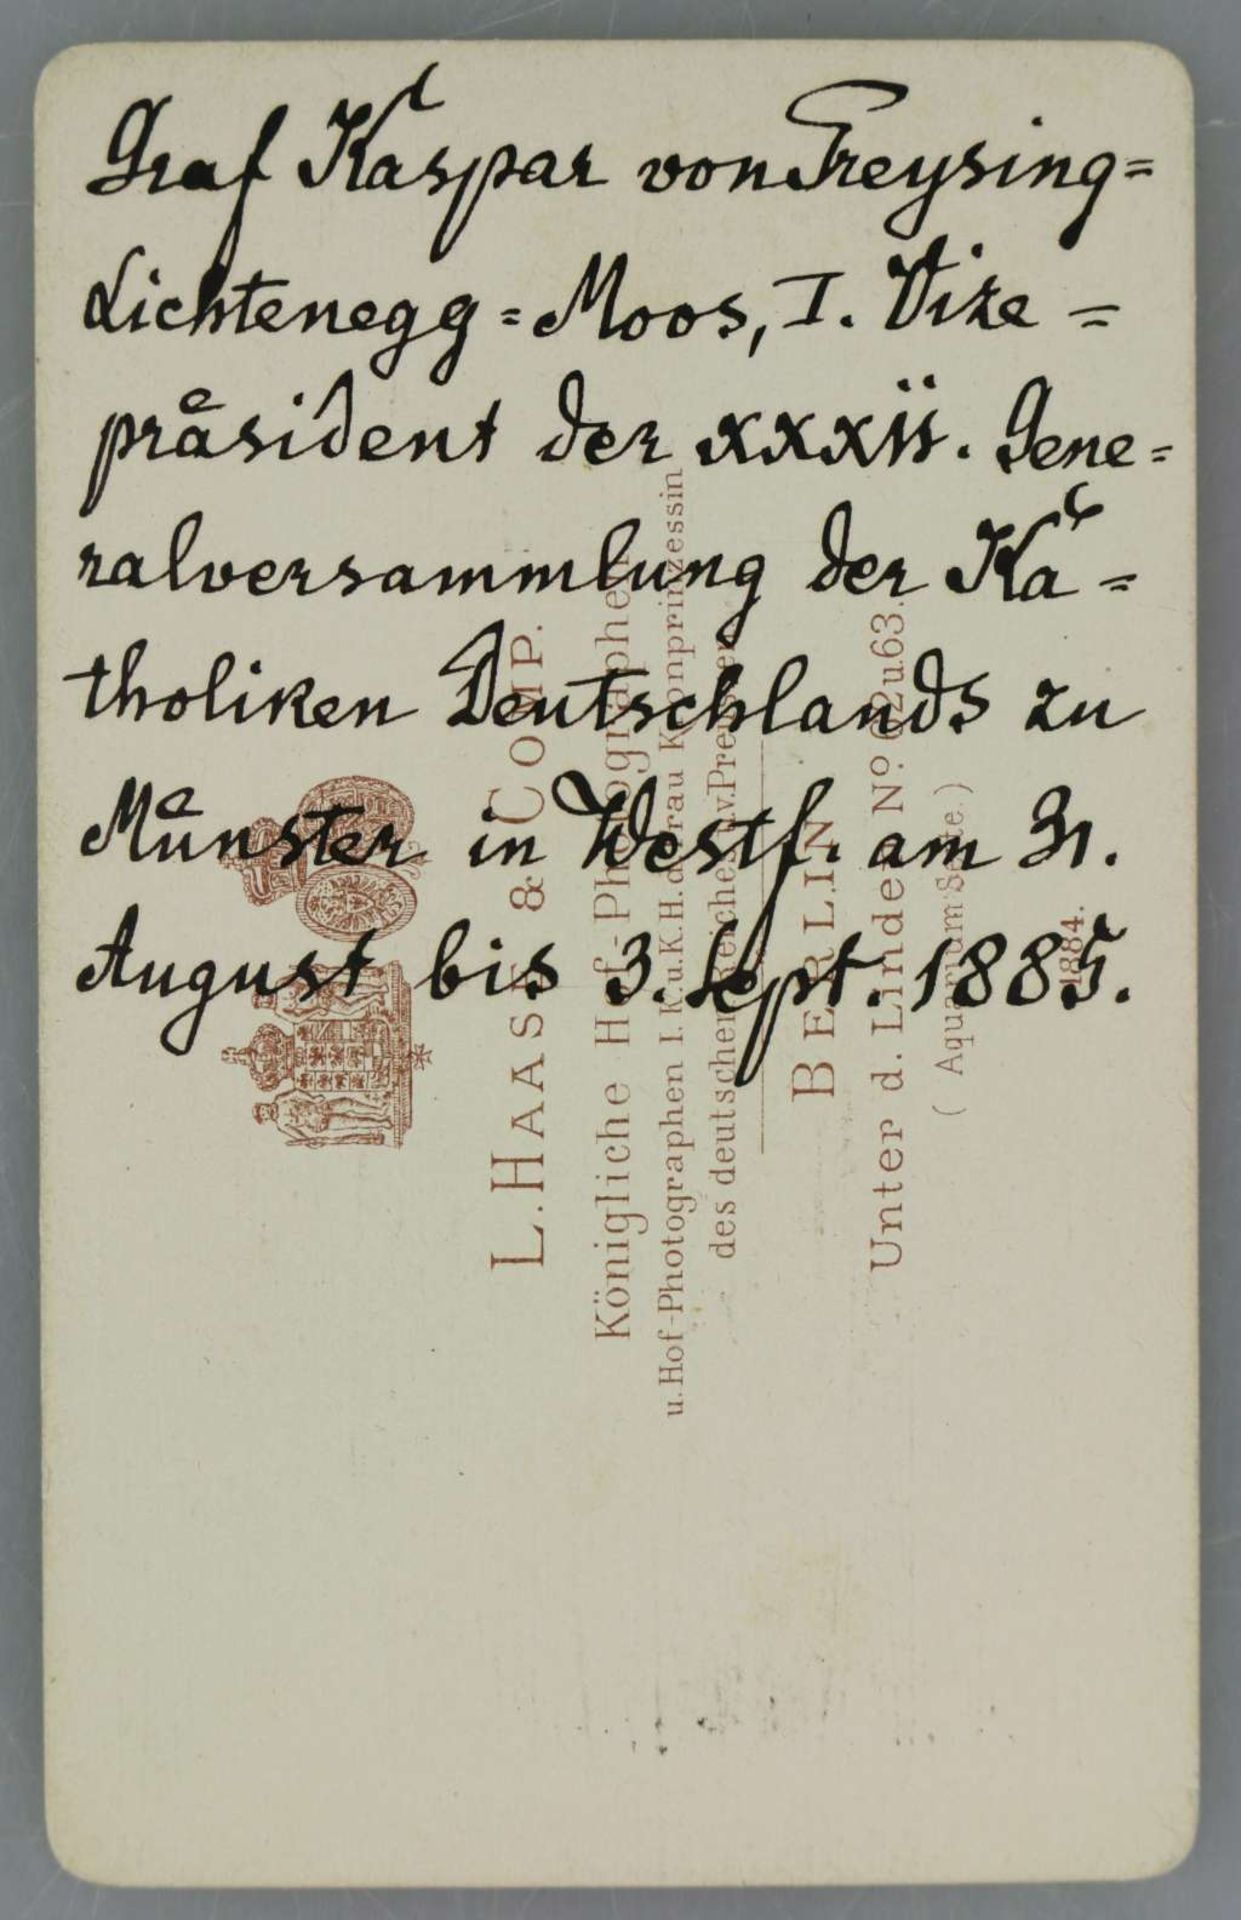 Graf Kaspar von Preysing=
Lichtenegg=Moos, I. Vize=
präsident der XXXII. Gene=
ralversammlung der Ka=
tholiken Deutschlands zu
Münster in Westf. am 31.
August bis 3. Sept. 1885.
L. HAASE & COMP.
Königliche Hof-Photographen
u. Hof-Photographen I. K. u. K. H. d. Frau Kronprinzessin
des deutschen Reiches u. v. Preussen
BERLIN
Unter d. Linden No. 62 u 63.
( Aquarium Seite.)
1884.